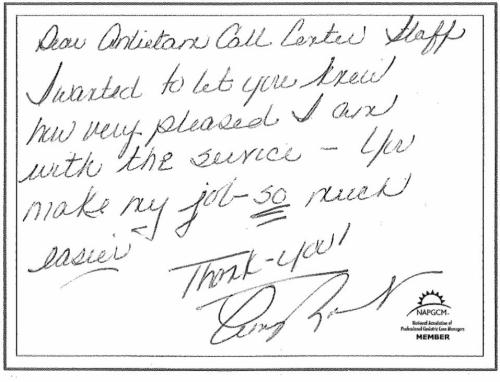 Dear Antietam Call Center Staff
I wanted to let you know
how very pleased I am
with the service - you
make my job - so much
easier
Thank-you!
NAPGCM
National Association of
Professional Geriatric Care Managers
MEMBER